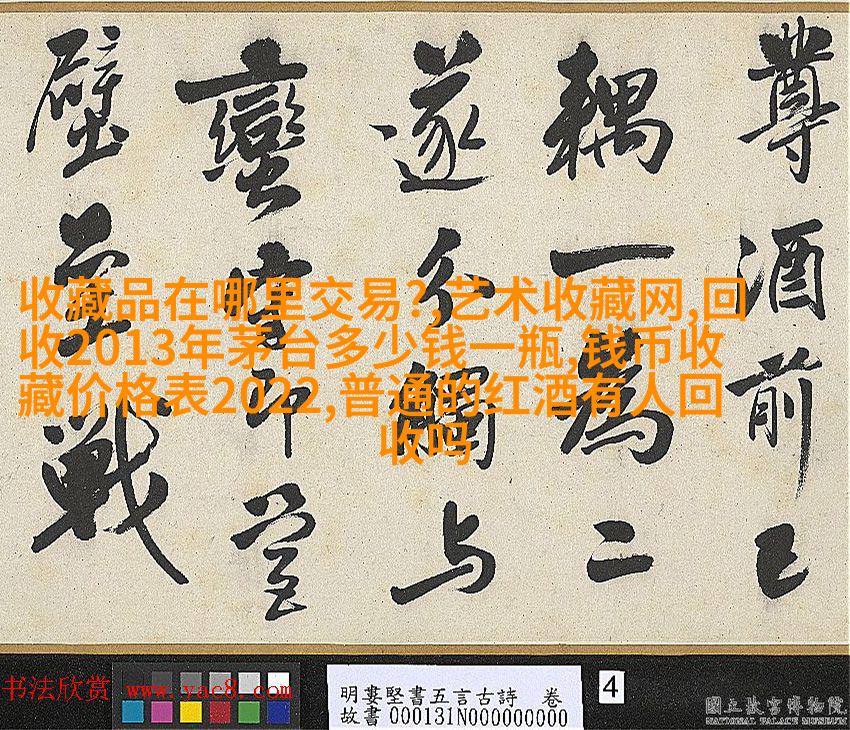 尊酒前已
耦一爲二
遂分觸与
蠻即營
壁壘戰
收藏品在哪里交易?,艺术收藏网,回
收2013年茅台多少钱一瓶,钱币收
藏价格表2022,普通的红酒有人回
收吗
书法欣赏 www.yac8.com
明婁堅書五言古詩 卷
故書000131N000000000
4
國立故宮博物院
NATIONAL PALACE MUSEUM